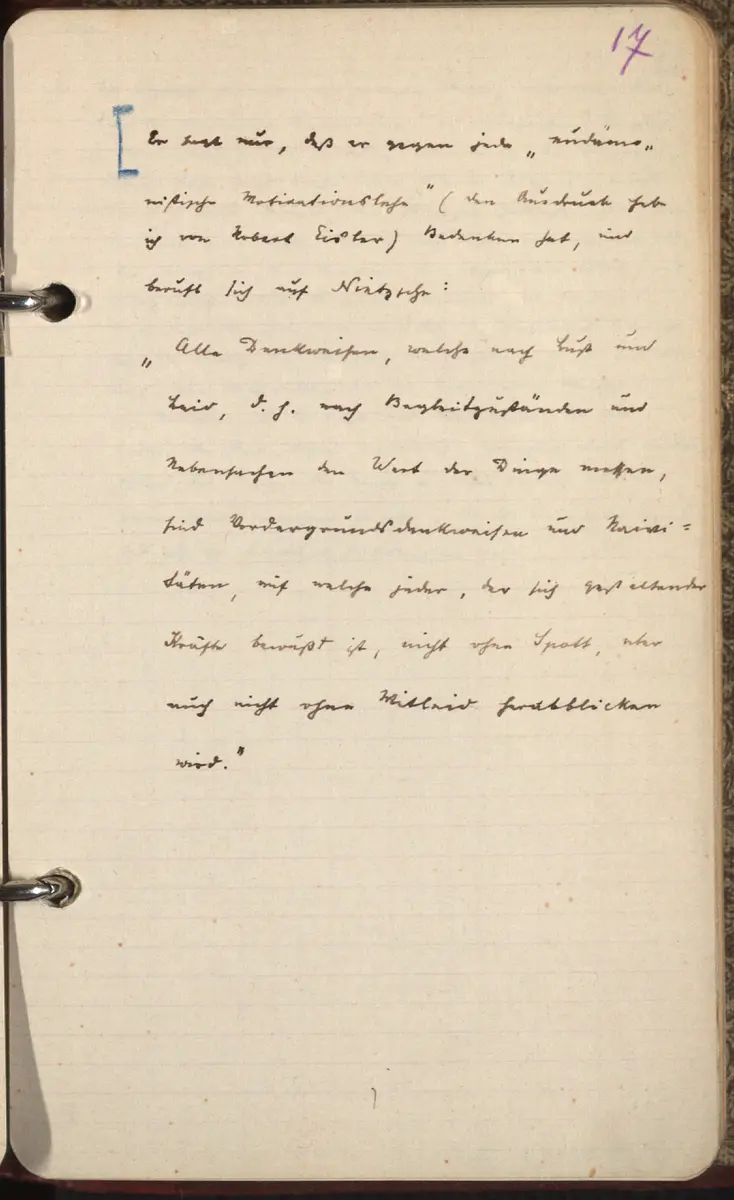 17
Er sagt nur, daß er gegen jede „eudämo„
nistische Motivationslehre" (den Ausdruck habe
ich von Robert Eisler) Bedenken hat, und
beruft sich auf Nietzsche:
„Alle Denkweisen, welche nach Lust und
Leid, d. h. nach Begleitzuständen und
Nebensachen den Wert der Dinge messen,
sind Vordergrundsdenkweisen und Naivi=
täten, auf welche jeder, der sich gestaltender
Kräfte bewußt ist, nicht ohne Spott, aber
auch nicht ohne Mitleid herabblicken
wird."